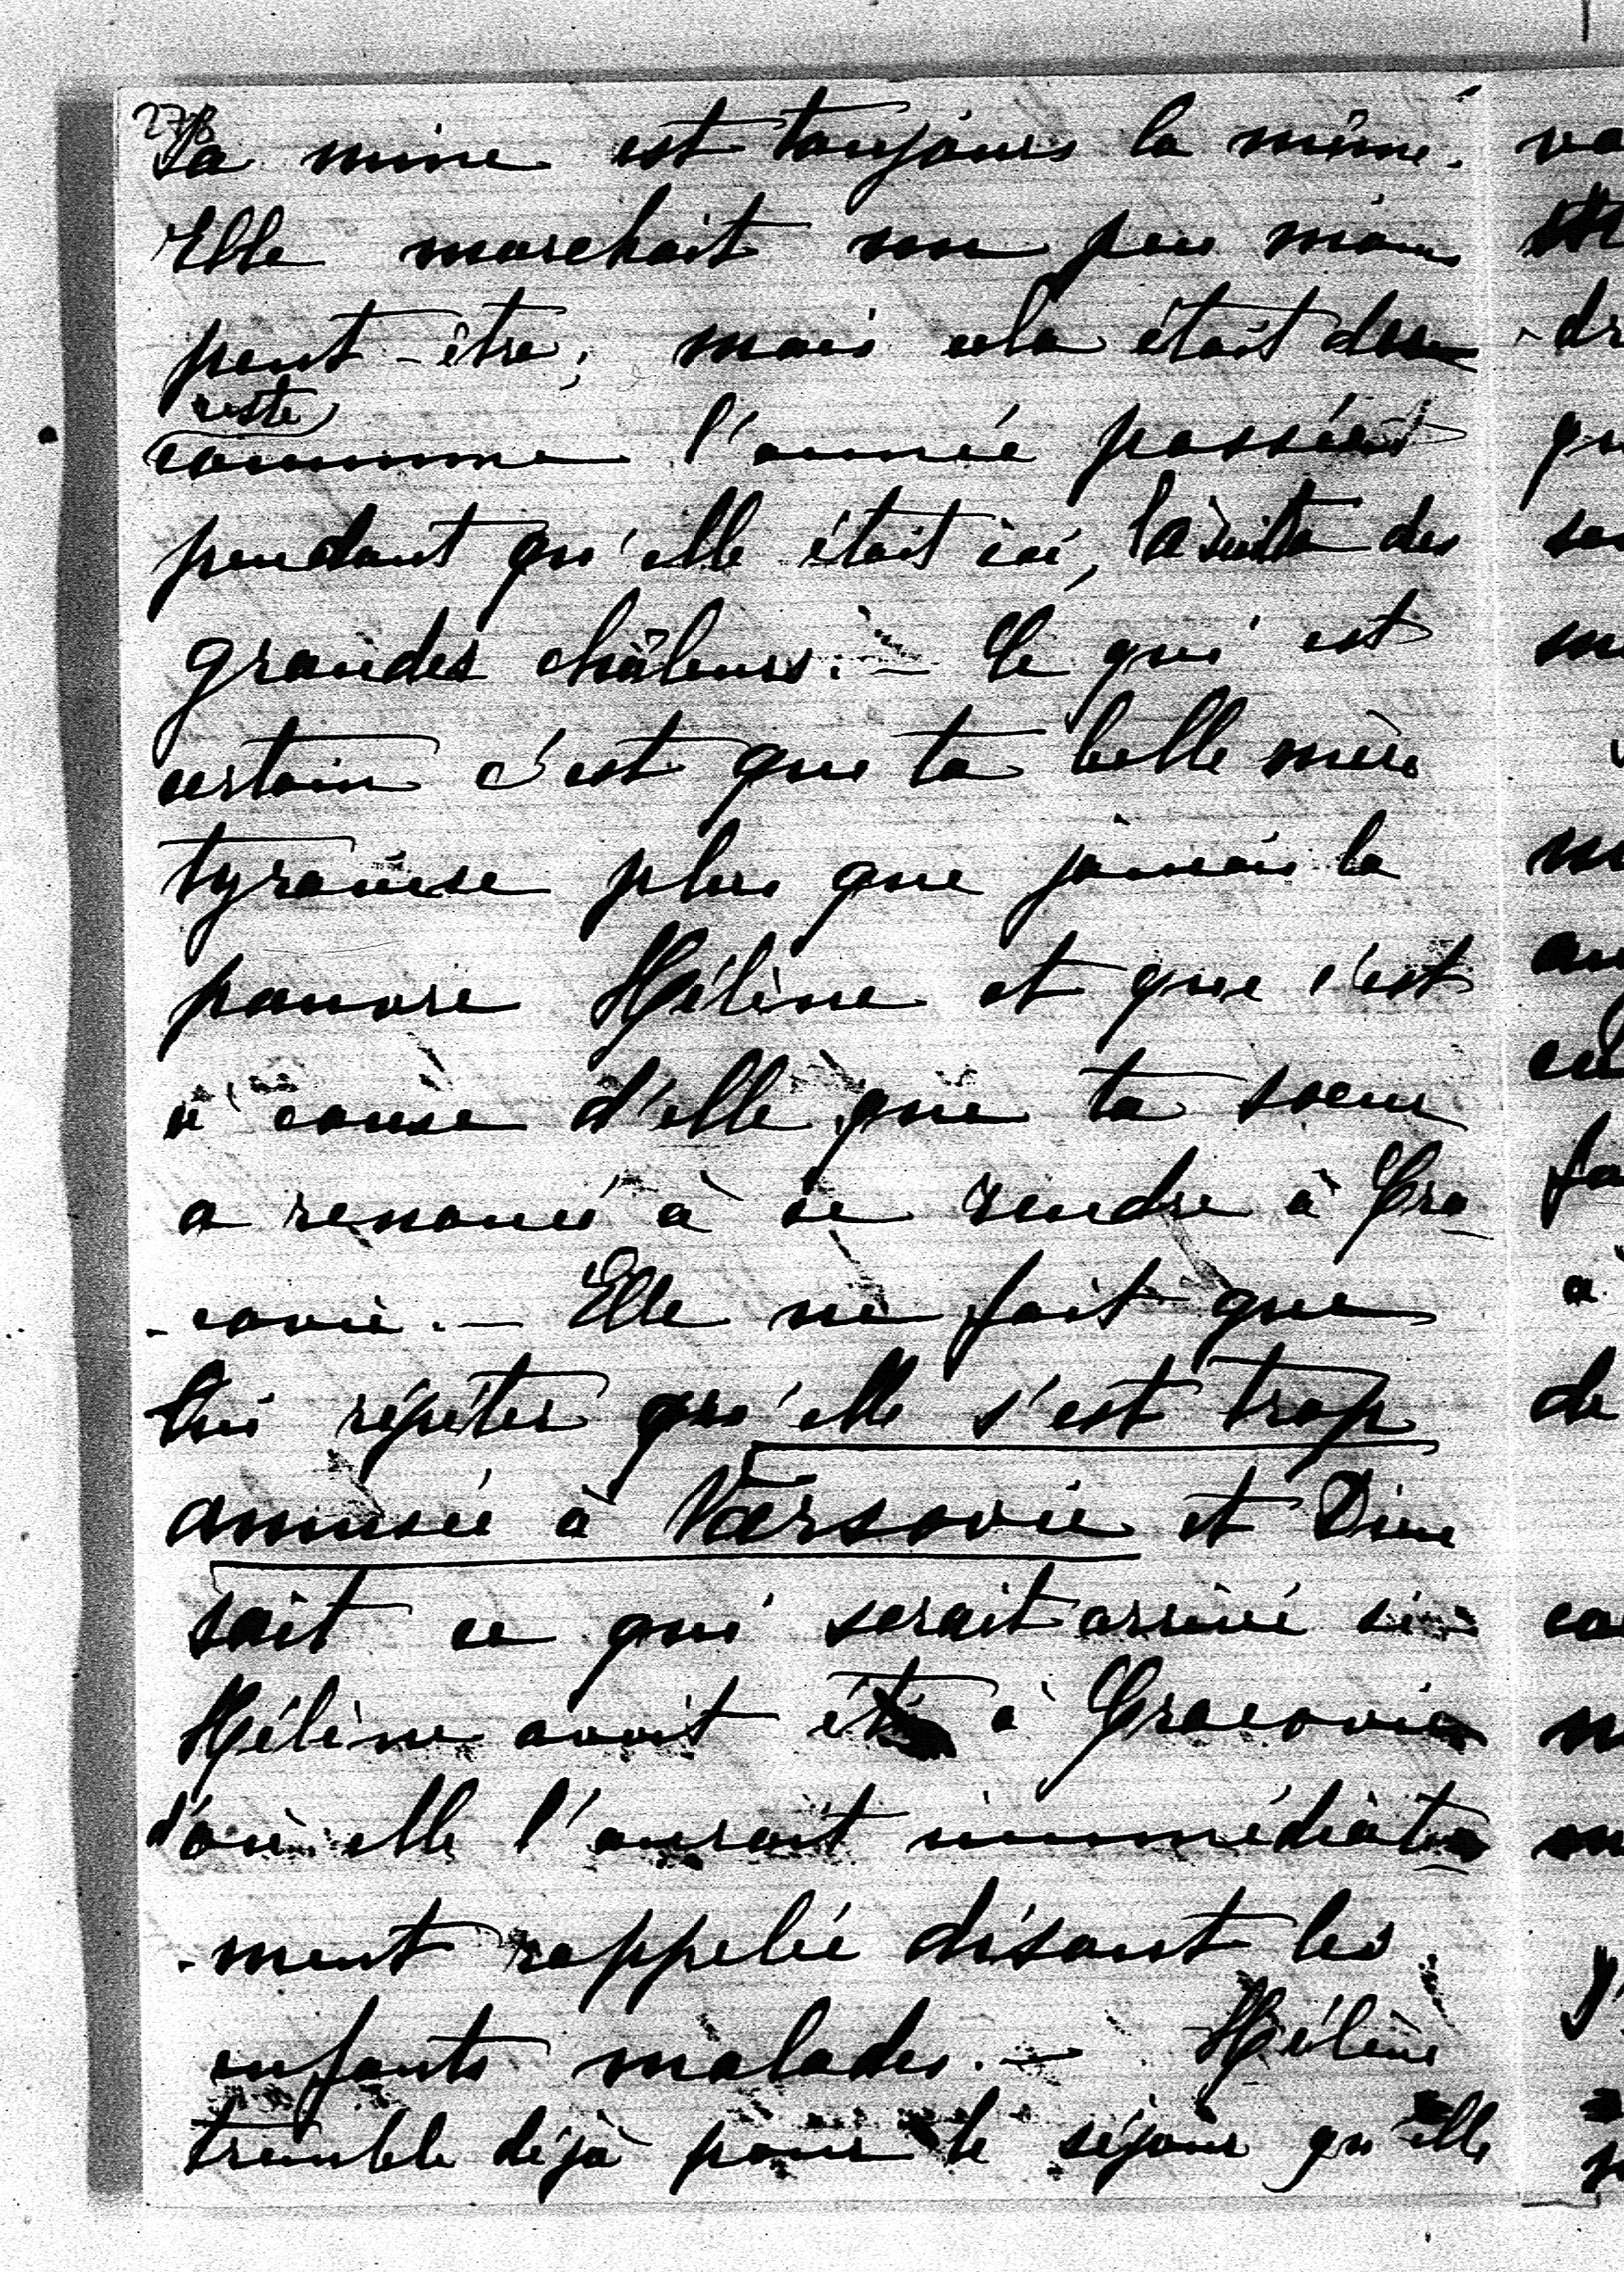 278
Sa mine est toujours la même.
Elle marchait un peu moins
peut-être; mais cela était du
reste
comme l'année passée
pendant qu'elle était ici, à suite des
grandes châleurs. — Ce qui est
certain c'est que ta belle mère
tyranise plus que jamais la
pauvre Hélène et que c'est
à cause d'elle que ta soeur
a renoncé à se rendre à Cra
-covie. — Elle ne fait que
lui répéter qu'elle s'est trop
amusée à Varsovie et Dieu
sait ce qui serait arrivé si
Hélène avait été à Cracovie
d'où elle l'aurait immédiate
-ment rappelée disant les
enfants malades. — Hélène
tremble déjà pour le séjour qu'elle